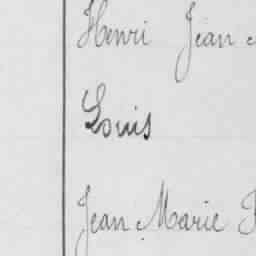 Henri Jean
Louis
Jean Marie